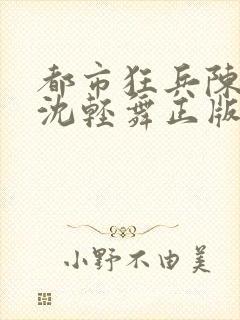 都市狂兵陳
沈輕舞正版
小野不由美